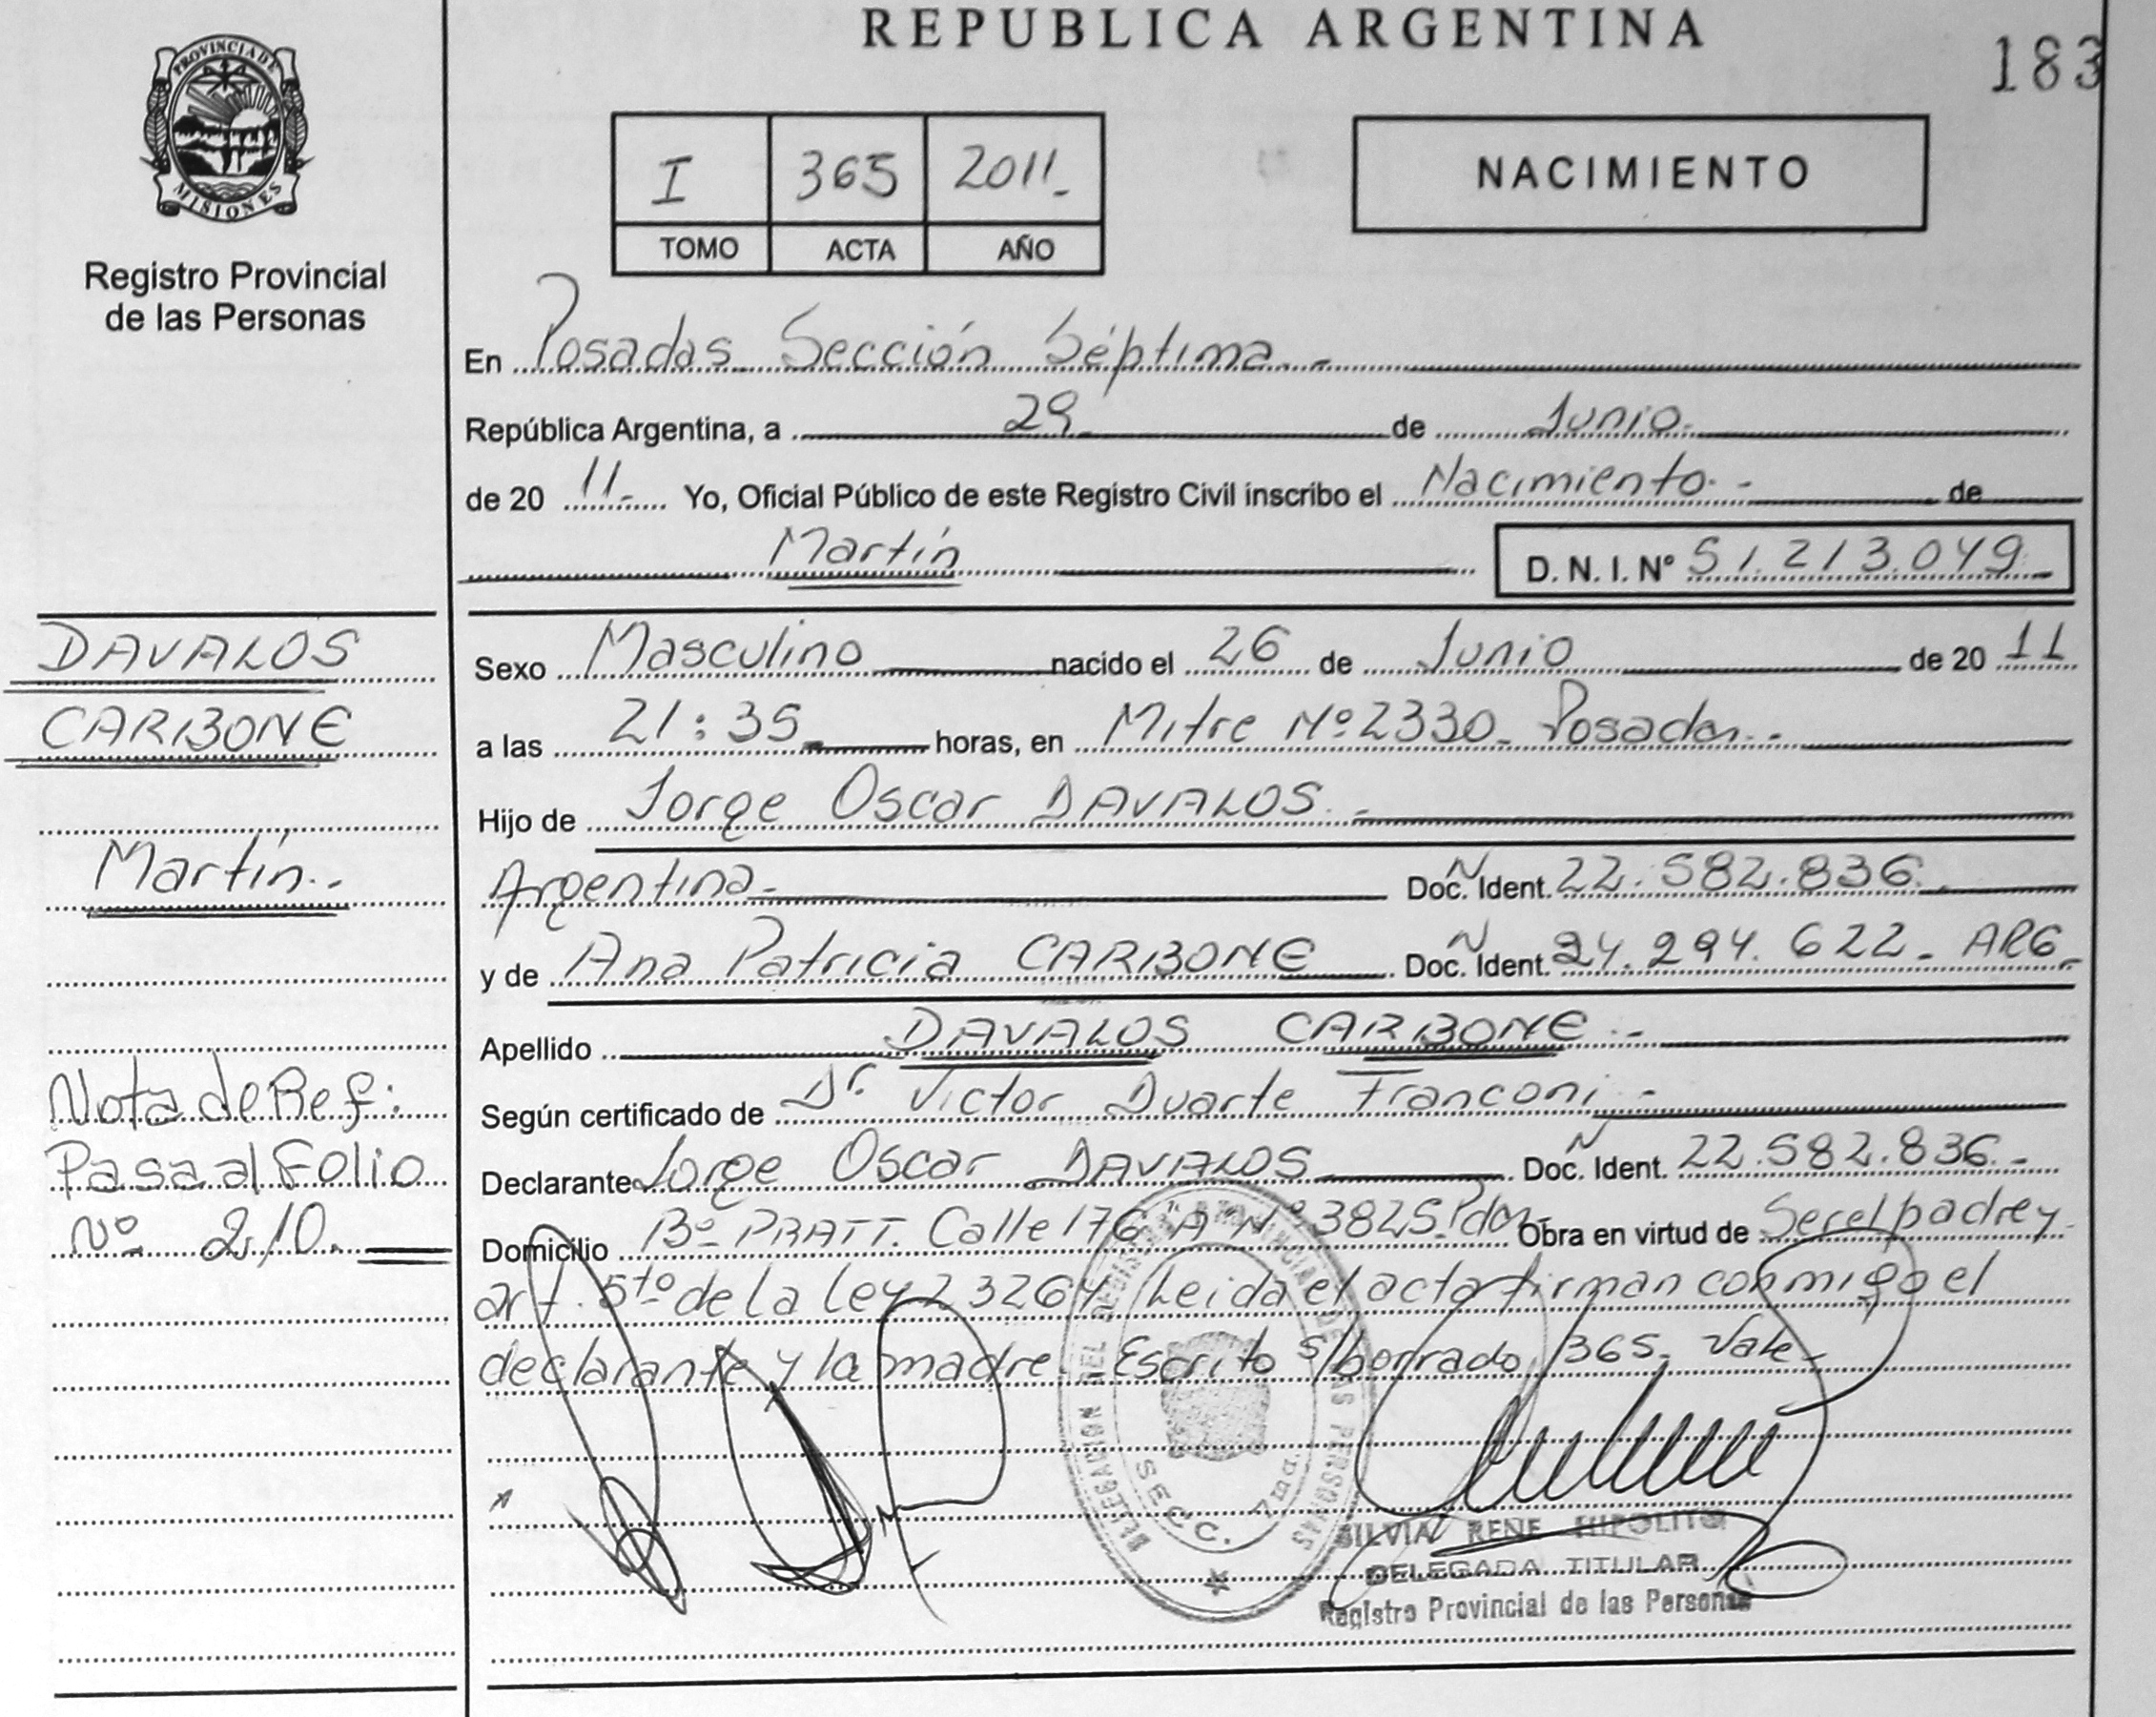 REPUBLICA ARGENTINA
183
PROVINCIA DE
MISIONES
Registro Provincial
de las Personas
I 365 2011.-
TOMO ACTA AÑO
NACIMIENTO
En Posadas Sección Séptima.-
República Argentina, a 29 de Junio.-
de 20 11.- Yo, Oficial Público de este Registro Civil inscribo el Nacimiento.- de
Martín
D. N. I. Nº 51.213.049.-
DAVALOS
CARBONE
Martín.-
Nota de Ref:
Pasa al Folio
Nº 210.
Sexo Masculino nacido el 26 de Junio de 20 11
a las 21:35 horas, en Mitre Nº 2330. Posadas.-
Hijo de Jorge Oscar DAVALOS.-
Argentina.- Doc. Ident. N 22.582.836.-
y de Ana Patricia CARBONE Doc. Ident. N 24.294.622.- ARG.-
Apellido DAVALOS CARBONE.-
Según certificado de Dr. Victor Duarte Franconi.-
Declarante Jorge Oscar DAVALOS Doc. Ident. N 22.582.836.-
Domicilio Bº PRATT. Calle 176 "A" Nº 3825. Pdas.- Obra en virtud de Ser el padre y
art. 5to de la ley 23264 Leida el acta firman conmigo el
declarante y la madre. Escrito s/borrado, 365. Vale.-
DELEGACION DEL REGISTRO PROVINCIAL DE LAS PERSONAS
SECC.
SILVIA RENE HIPOLITO
DELEGADA TITULAR
Registro Provincial de las Personas